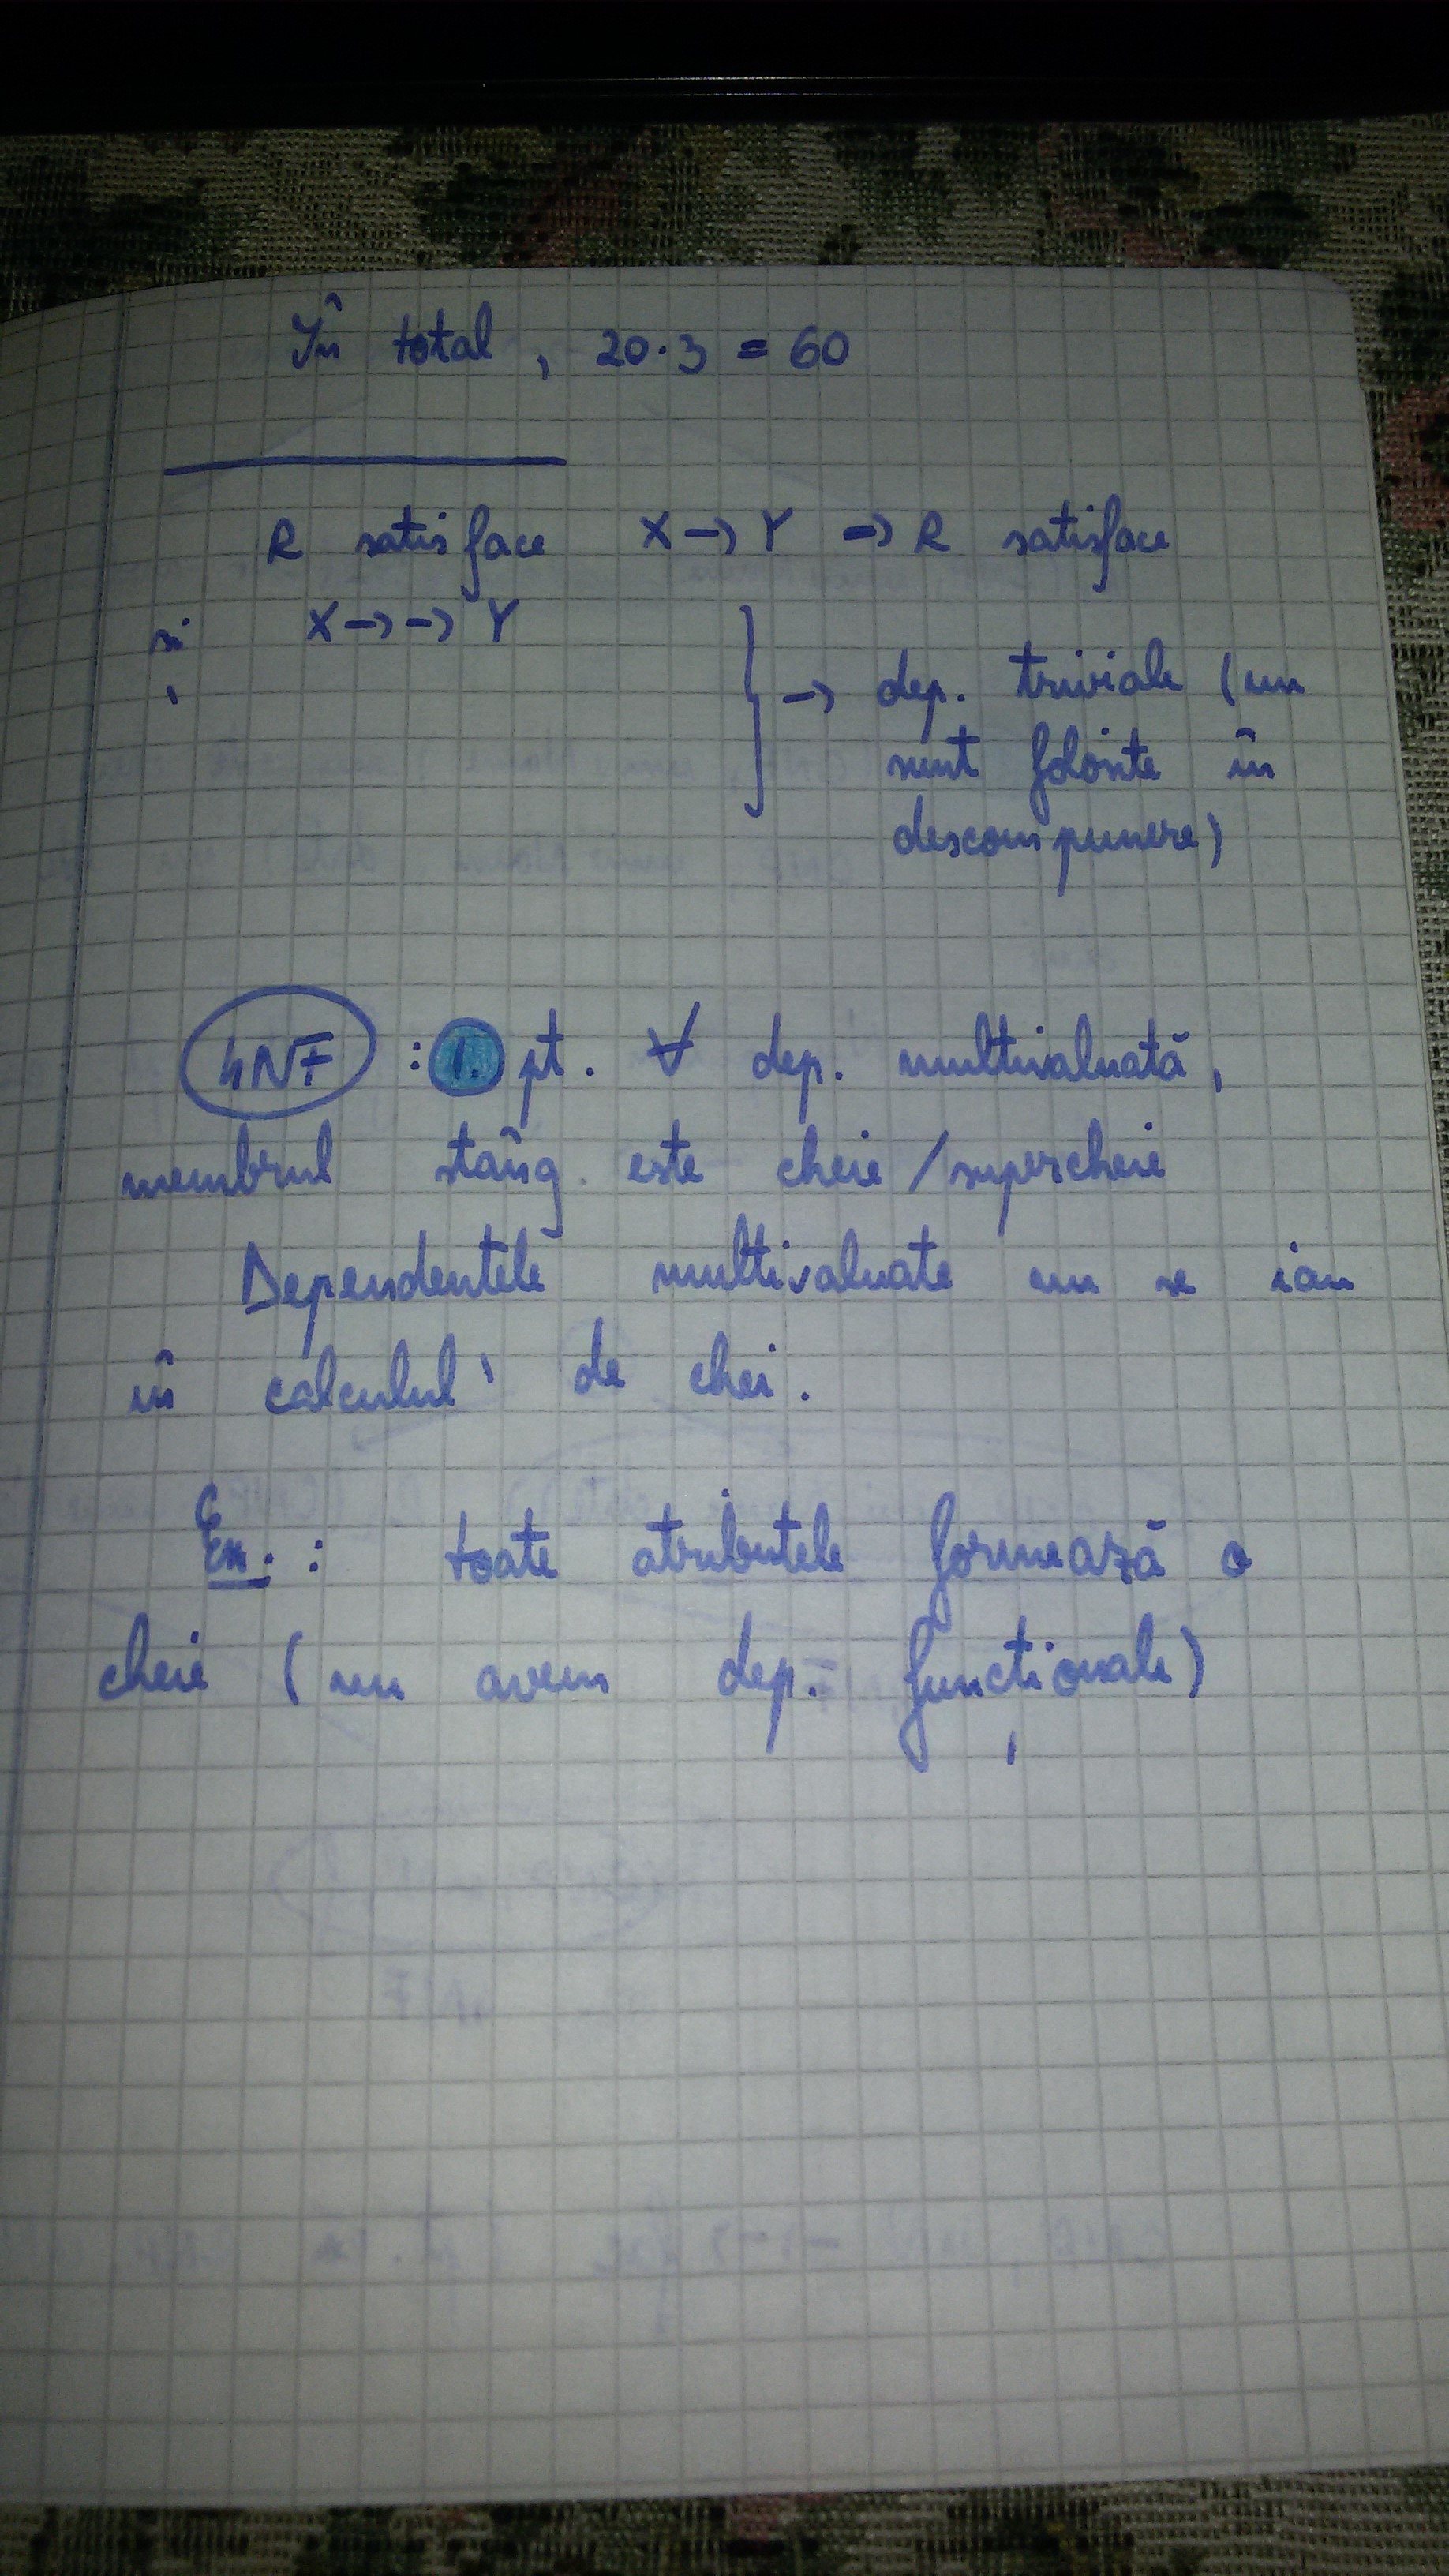 În total, 20·3 = 60
R satisface X→Y => R satisface
și X→→Y
} → dep. triviale (nu
sunt folosite în
descompunere)
4NF : 1. pt. ∀ dep. multivaluată,
membrul stâng este cheie/supercheie
Dependentele multivaluate nu se iau
în calculul de chei.
Ex. : toate atributele formează o
cheie (nu avem dep. funcționale)